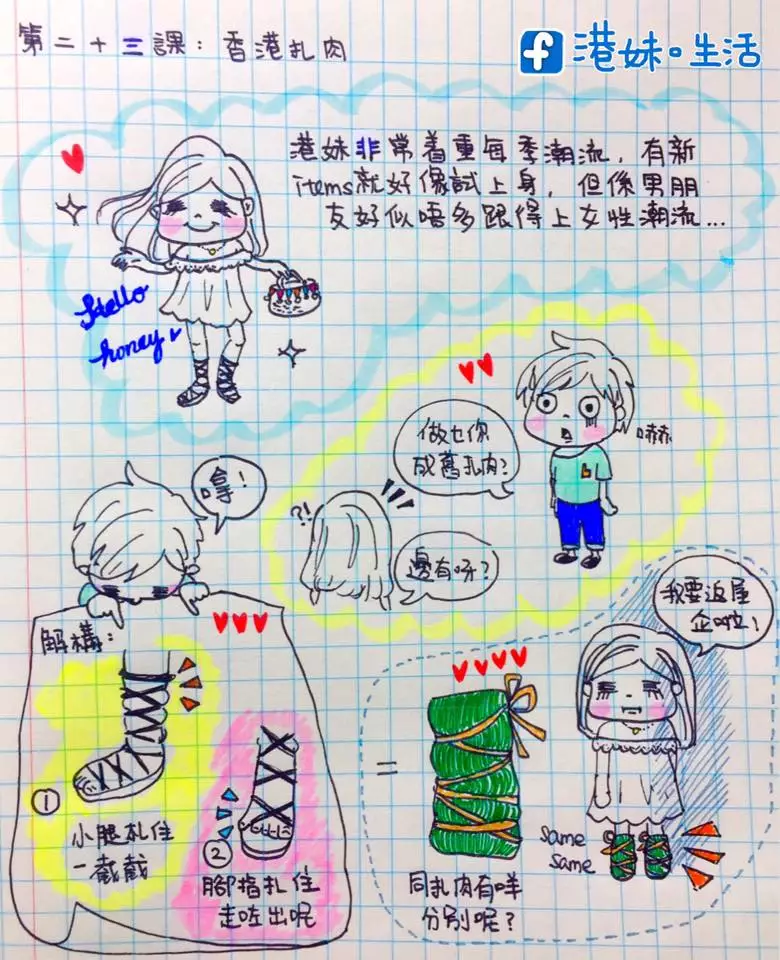 第二十三課：香港扎肉
港妹。生活
港妹非常着重每季潮流，有新
items就好像試上身，但係男朋
友好似唔多跟得上女性潮流...
Hello
honey
做乜你
成舊扎肉？
嚇
?!
邊有呀？
嗱！
解構：
①
小腿扎住
一截截
②
腳指扎住
走咗出呢
=
同扎肉有咩
分別呢？
same
same
我要返屋
企啦！